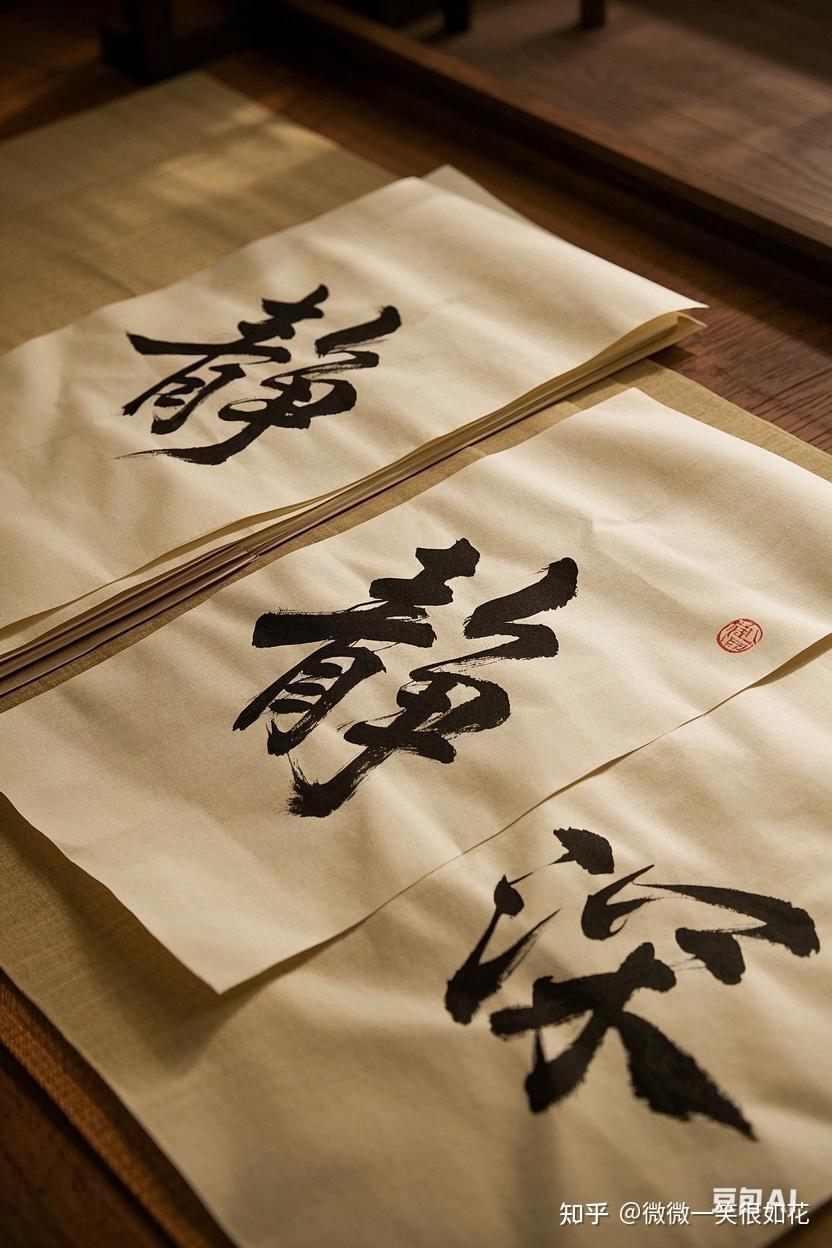 静
静
深
豆包AI
知乎 @微微一笑很如花